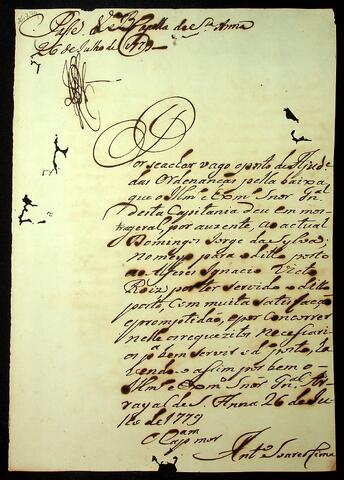 Passe de V.ª Capella de S.ta Anna
26 de Julho de 1779
Por se achar vago o posto de Ajud.e
das Ordenanças pella baixa
que o Illm.o e Exm.o Snor Gn.al
desta Capitania deu em mos-
tra geral, por auzente, ao actual
Domingos Jorge da Sylva;
nomeyo para o ditto posto
ao Alferes Ignacio Victo
Roiz por ter servido o ditto
posto, com muita satisfação
e promptidão, e por concorrer
nelle os requezitos necessari-
os p.a bem servir o d.o posto, ha-
vendo o assim por bem o
Illm.o e Exm.o Snor Gn.al Ar-
rayal de S. Anna 26 de Ju-
lho de 1779
O Cap.am mor
Ant.o Soares Lima